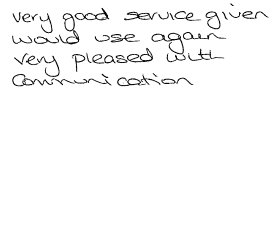 very good service given
would use again
very pleased with
communication